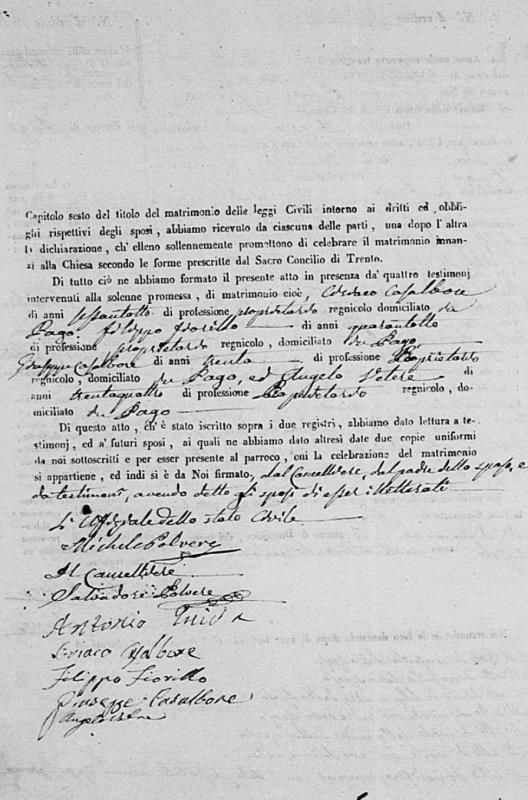 Capitolo sesto del titolo del matrimonio delle leggi Civili intorno ai dritti ed obbli-
ghi rispettivi degli sposi, abbiamo ricevuto da ciascuna delle parti, una dopo l'altra
la dichiarazione, ch'elleno sollennemente promettono di celebrare il matrimonio innan-
zi alla Chiesa secondo le forme prescritte dal Sacro Concilio di Trento.
Di tutto ciò ne abbiamo formato il presente atto in presenza da' quattro testimonj
intervenuti alla solenne promessa, di matrimonio cioè, Ciriaco Casalbore
di anni sessantotto di professione proprietario regnicolo domiciliato da
Pago, Filippo Fiorillo di anni quarantotto
di professione proprietario regnicolo, domiciliato da Pago,
Giuseppe Casalbore di anni trenta di professione Proprietario
regnicolo, domiciliato da Pago, ed Angelo Vetere di
anni trentaquattro di professione Proprietario regnicolo, do-
miciliato da Pago
Di questo atto, ch'è stato iscritto sopra i due registri, abbiamo dato lettura a te-
stimonj, ed a' futuri sposi, ai quali ne abbiamo dato altresì date due copie uniformi
da noi sottoscritti e per esser presente al parroco, cui la celebrazione del matrimonio
si appartiene, ed indi si è da Noi firmato, dal Cancelliere, dal padre dello sposo, e
da testimonj, avendo detto gli sposi di esser illetterati
L'Uffiziale dello stato Civile
Michele Polvere
Il Cancelliere
Salvadore Polvere
Antonio
Ciriaco Casalbore
Filippo Fiorillo
Giuseppe Casalbore
Angelo Vetere